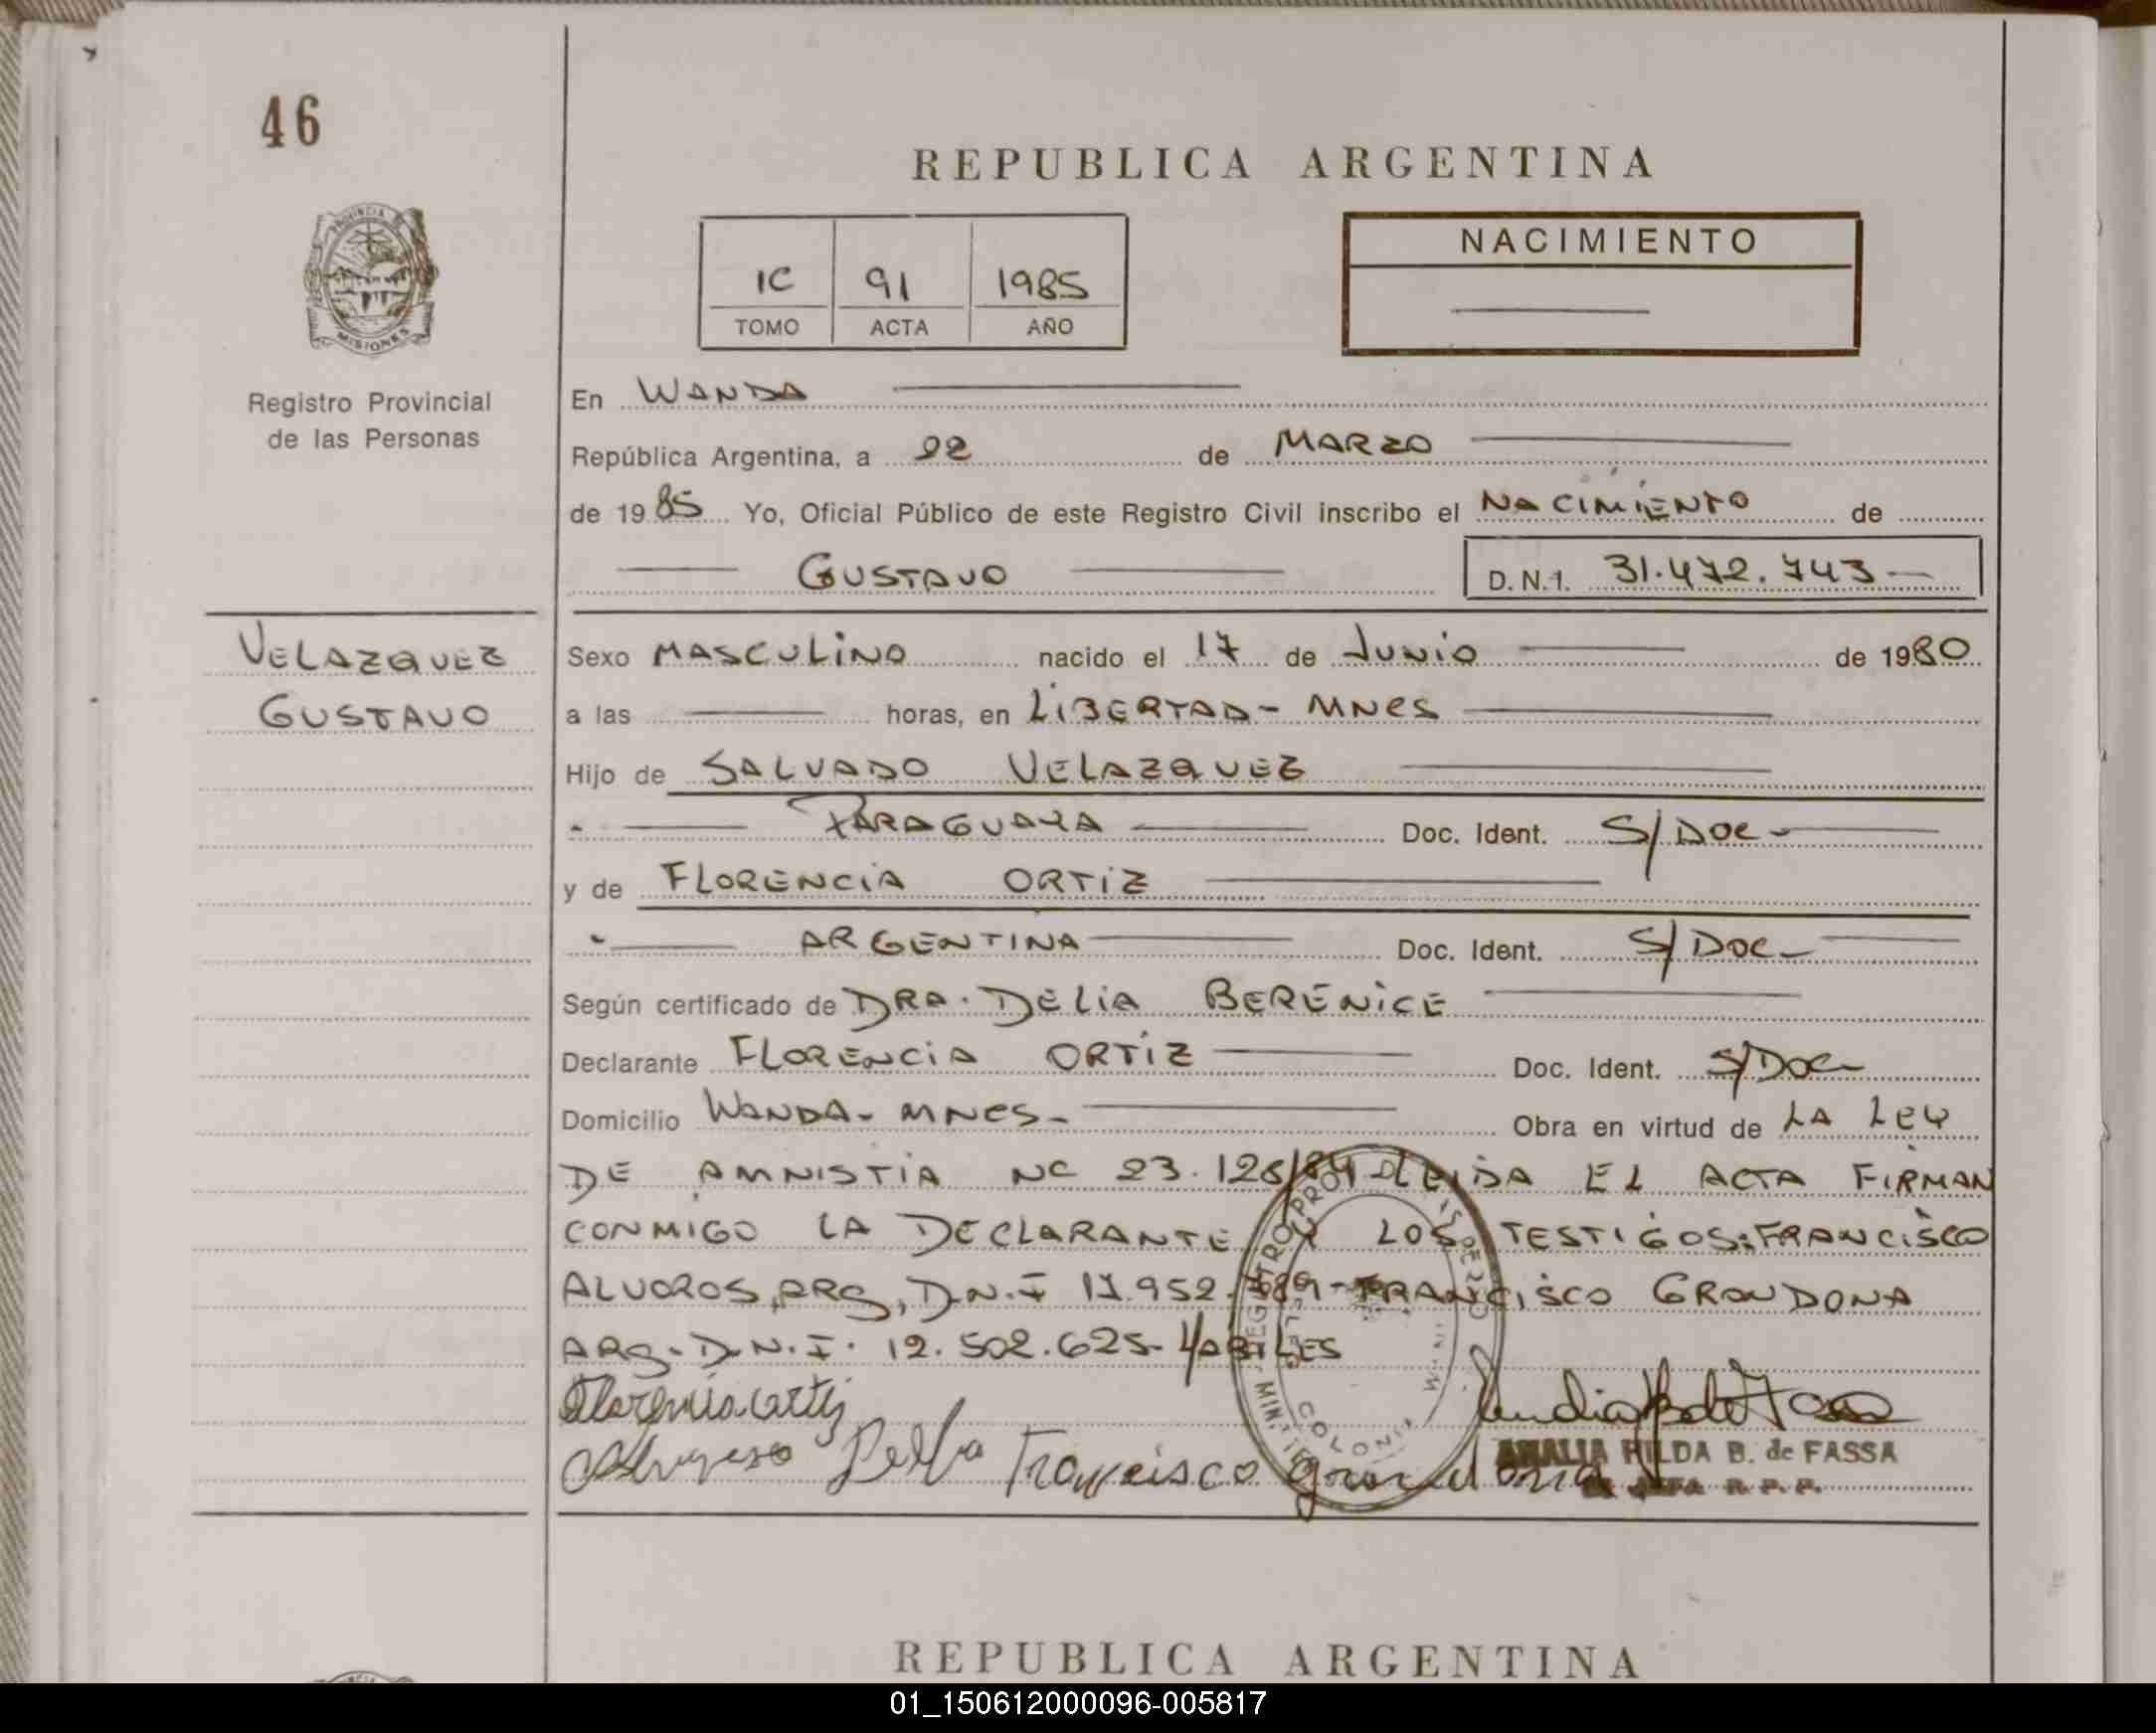 46
REPUBLICA ARGENTINA
PROVINCIA DE
MISIONES
Registro Provincial
de las Personas
1C 91 1985
TOMO ACTA AÑO
NACIMIENTO
En WANDA
República Argentina, a 22 de MARZO
de 1985 Yo, Oficial Público de este Registro Civil inscribo el NACIMIENTO de
GUSTAVO D.N.I. 31.472.743-
VELAZQUEZ
GUSTAVO
Sexo MASCULINO nacido el 17 de JUNIO de 1980
a las horas, en LIBERTAD- MNES
Hijo de SALVADO VELAZQUEZ
PARAGUAYA Doc. Ident. S/DOC-
y de FLORENCIA ORTIZ
ARGENTINA Doc. Ident. S/DOC-
Según certificado de DRA. DELIA BERENICE
Declarante FLORENCIA ORTIZ Doc. Ident. S/DOC-
Domicilio WANDA- MNES- Obra en virtud de LA LEY
DE AMNISTIA Nº 23.128/84 LEIDA EL ACTA FIRMAN
CONMIGO LA DECLARANTE Y LOS TESTIGOS: FRANCISCO
ARG, D.N.I 17.952. FRANCISCO GRONDONA
ARG. D.N.I. 12.502.625- HABILES
Florencia ortiz
Francisco grondona
AMALIA HILDA B. de FASSA
R. P. P.
COLONIA
REPUBLICA ARGENTINA
01_150612000096-005817